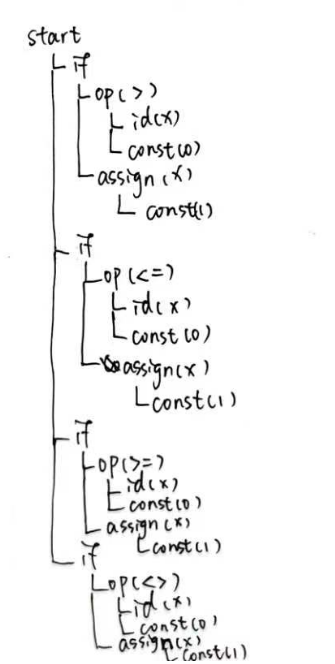 start
if
op(>)
id(x)
const(0)
assign(x)
const(1)
if
op(<=)
id(x)
const(0)
assign(x)
const(1)
if
op(>=)
id(x)
const(0)
assign(x)
const(1)
if
op(<>)
id(x)
const(0)
assign(x)
const(1)